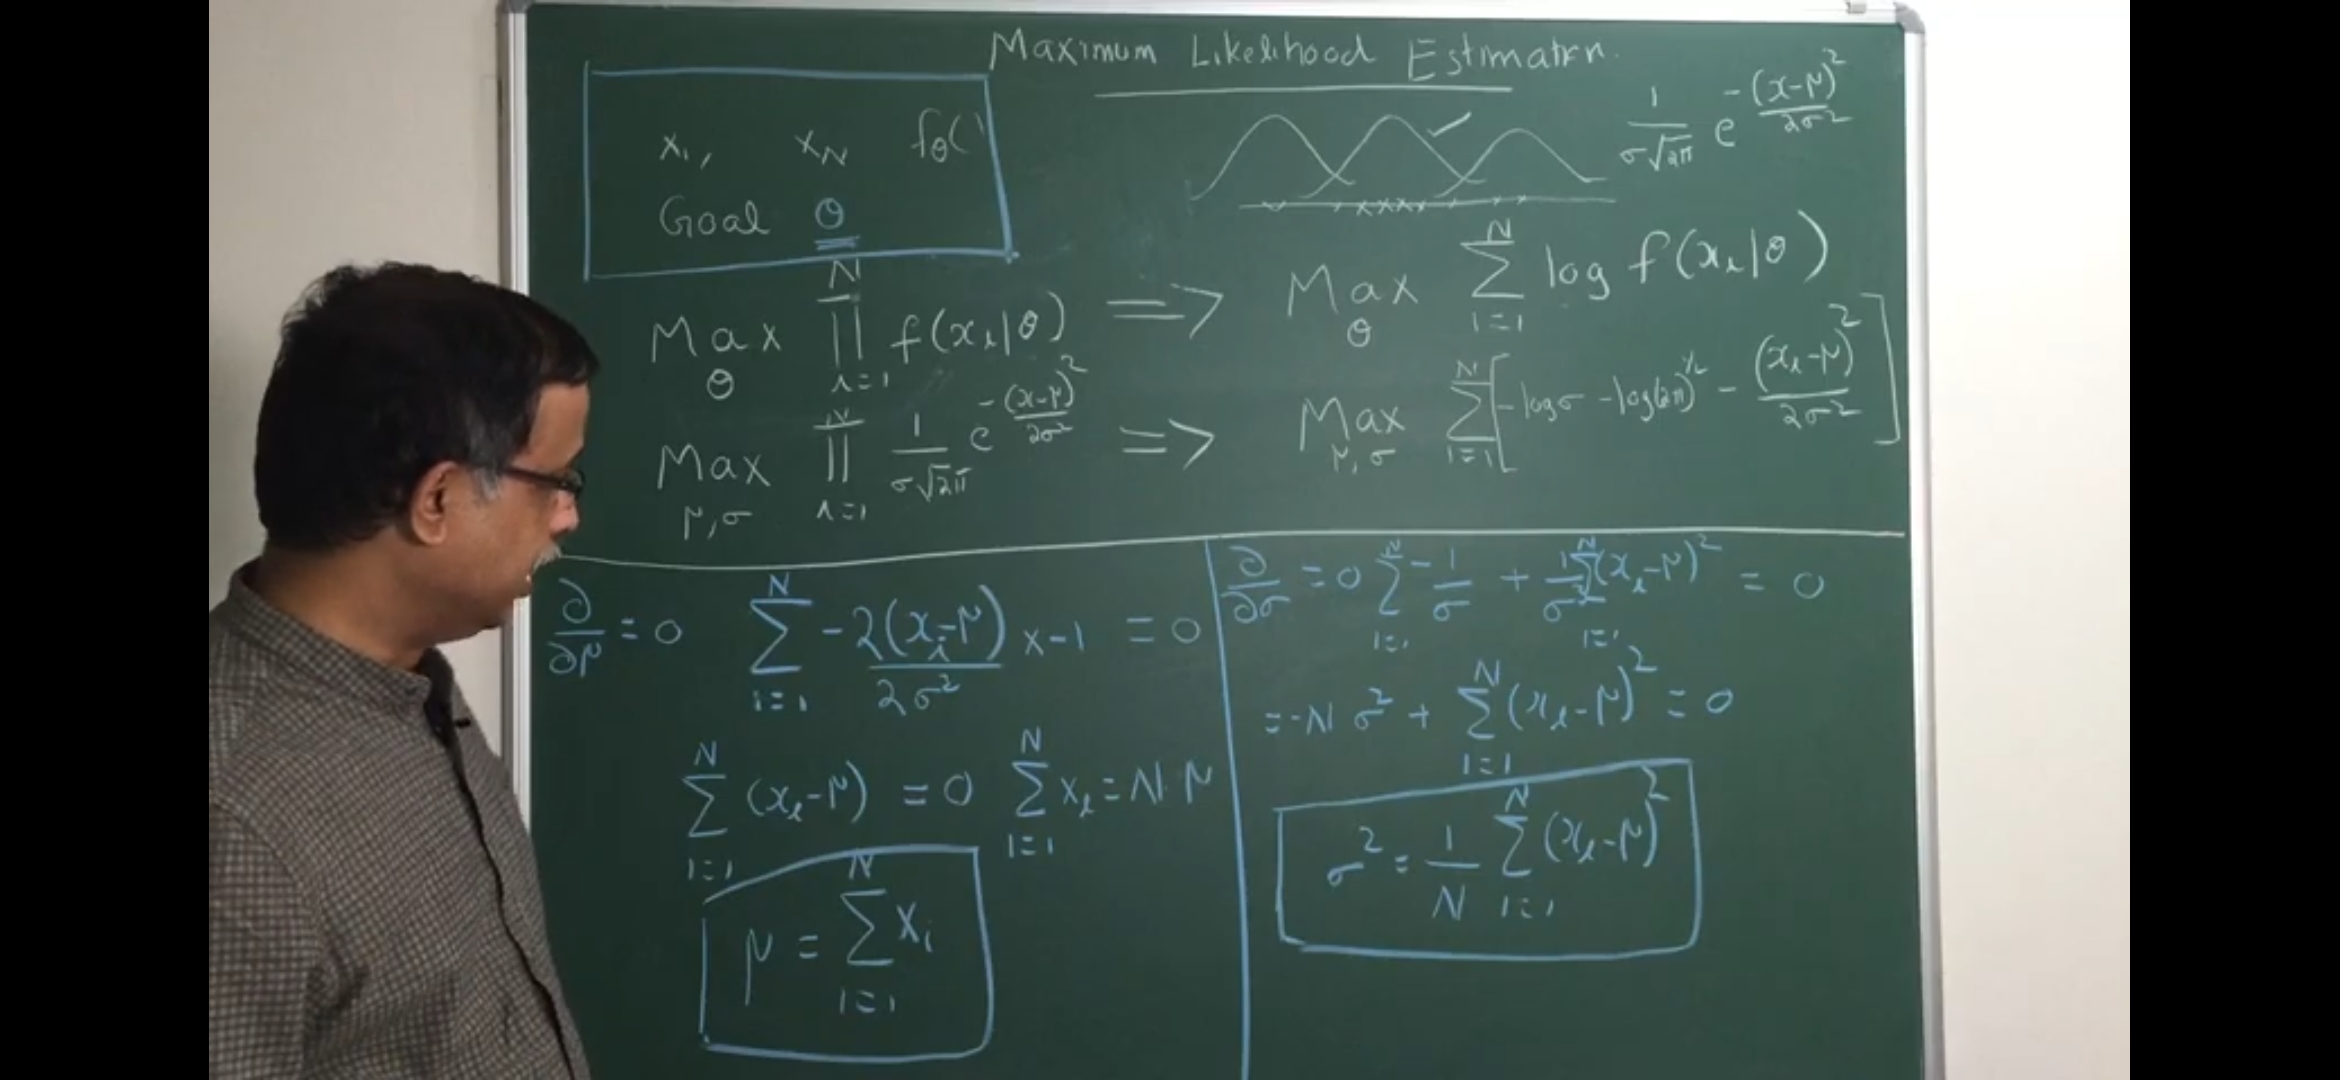 Maximum Likelihood Estimatrn.
x₁, x_N f_θ(
Goal θ
1/(σ√2π) e^(-(x-μ)²/2σ²)
Max_θ ∏_{i=1}^{N} f(x_i|θ) => Max_θ ∑_{i=1}^{N} log f(x_i|θ)
Max_{μ,σ} ∏_{i=1}^{N} 1/(σ√2π) e^(-(x-μ)²/2σ²) => Max_{μ,σ} ∑_{i=1}^{N} [-logσ -log(2π)^{1/2} - (x_i-μ)²/2σ²]
∂/∂μ = 0 ∑_{i=1}^{N} -2(x_i-μ)/2σ² x-1 = 0
∑_{i=1}^{N} (x_i-μ) = 0 ∑_{i=1}^{N} x_i = N μ
μ = ∑_{i=1}^{N} x_i
∂/∂σ = 0 ∑_{i=1}^{N} -1/σ + 1/σ³ ∑_{i=1}^{N} (x_i-μ)² = 0
= -N σ² + ∑_{i=1}^{N} (x_i-μ)² = 0
σ² = 1/N ∑_{i=1}^{N} (x_i-μ)²